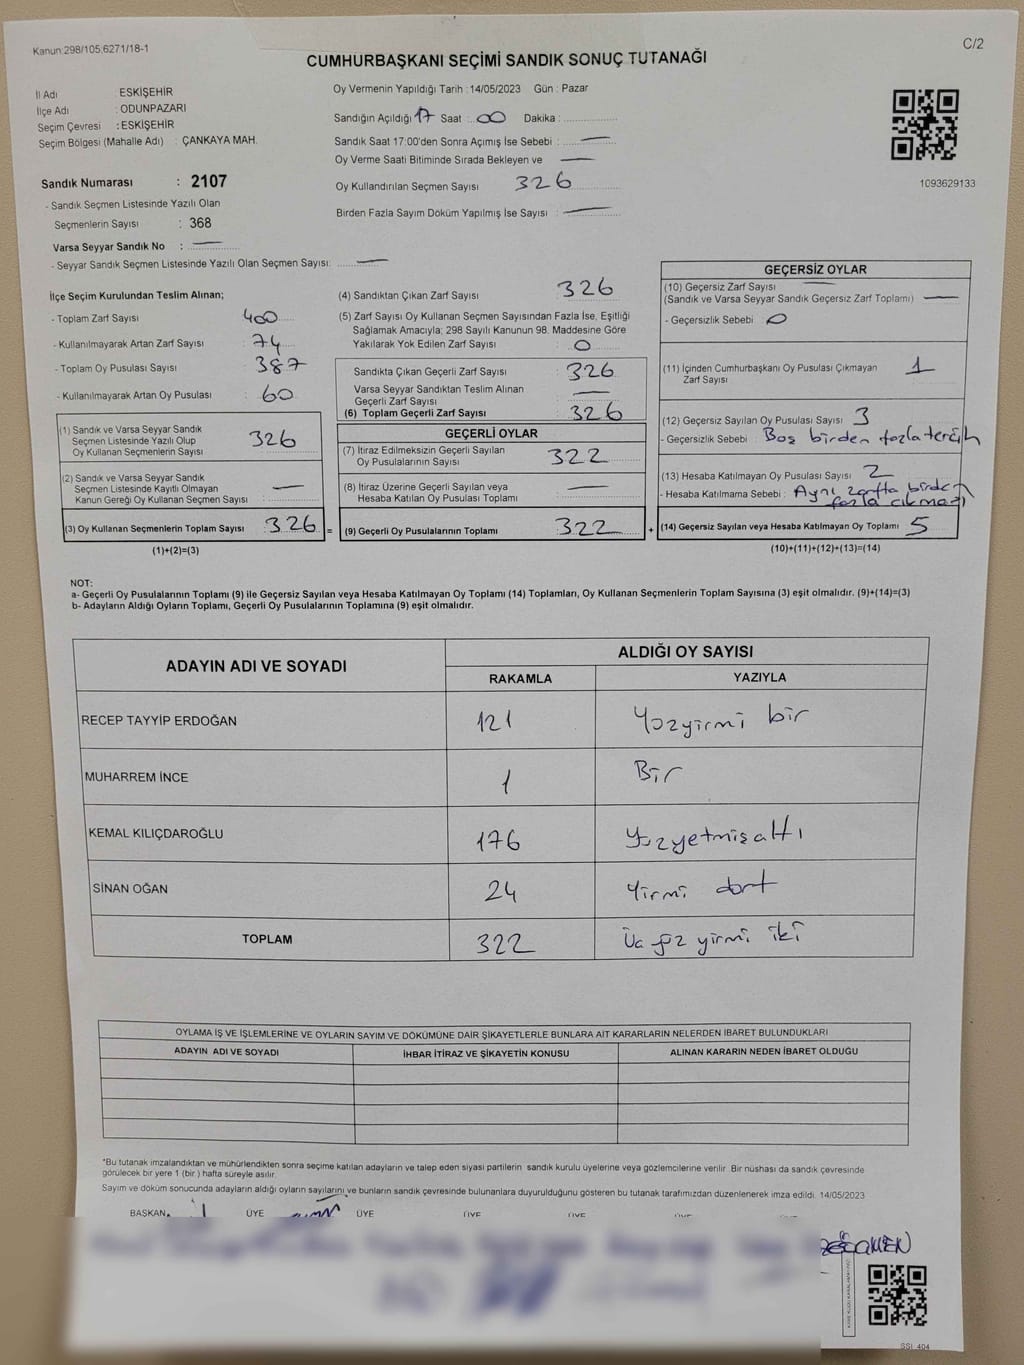 Kanun:298/105:6271/18-1
C/2
CUMHURBAŞKANI SEÇİMİ SANDIK SONUÇ TUTANAĞI
İl Adı : ESKİŞEHİR
İlçe Adı : ODUNPAZARI
Seçim Çevresi : ESKİŞEHİR
Seçim Bölgesi (Mahalle Adı) : ÇANKAYA MAH.
Sandık Numarası : 2107
- Sandık Seçmen Listesinde Yazılı Olan
Seçmenlerin Sayısı : 368
Varsa Seyyar Sandık No :
- Seyyar Sandık Seçmen Listesinde Yazılı Olan Seçmen Sayısı:
Oy Vermenin Yapıldığı Tarih :14/05/2023 Gün : Pazar
Sandığın Açıldığı 17 Saat :.. 00 Dakika :
Sandık Saat 17:00'den Sonra Açımış İse Sebebi :
Oy Verme Saati Bitiminde Sırada Bekleyen ve
Oy Kullandırılan Seçmen Sayısı 326
Birden Fazla Sayım Döküm Yapılmış İse Sayısı :
1093629133
İlçe Seçim Kurulundan Teslim Alınan;
- Toplam Zarf Sayısı 400
- Kullanılmayarak Artan Zarf Sayısı 74
- Toplam Oy Pusulası Sayısı 387
- Kullanılmayarak Artan Oy Pusulası 60
(1) Sandık ve Varsa Seyyar Sandık
Seçmen Listesinde Yazılı Olup
Oy Kullanan Seçmenlerin Sayısı 326
(2) Sandık ve Varsa Seyyar Sandık
Seçmen Listesinde Kayıtlı Olmayan
Kanun Gereği Oy Kullanan Seçmen Sayısı
(3) Oy Kullanan Seçmenlerin Toplam Sayısı 326
(1)+(2)=(3)
(4) Sandıktan Çıkan Zarf Sayısı 326
(5) Zarf Sayısı Oy Kullanan Seçmen Sayısından Fazla İse, Eşitliği
Sağlamak Amacıyla; 298 Sayılı Kanunun 98. Maddesine Göre
Yakılarak Yok Edilen Zarf Sayısı : 0
Sandıkta Çıkan Geçerli Zarf Sayısı : 326
Varsa Seyyar Sandıktan Teslim Alınan
Geçerli Zarf Sayısı :
(6) Toplam Geçerli Zarf Sayısı : 326
GEÇERLİ OYLAR
(7) İtiraz Edilmeksizin Geçerli Sayılan
Oy Pusulalarının Sayısı : 322
(8) İtiraz Üzerine Geçerli Sayılan veya
Hesaba Katılan Oy Pusulası Toplamı :
= (9) Geçerli Oy Pusulalarının Toplamı : 322 +
GEÇERSİZ OYLAR
(10) Geçersiz Zarf Sayısı
(Sandık ve Varsa Seyyar Sandık Geçersiz Zarf Toplamı)
- Geçersizlik Sebebi : 0
(11) İçinden Cumhurbaşkanı Oy Pusulası Çıkmayan
Zarf Sayısı 1
(12) Geçersiz Sayılan Oy Pusulası Sayısı 3
- Geçersizlik Sebebi : Boş birden fazla tercih
(13) Hesaba Katılmayan Oy Pusulası Sayısı 2
- Hesaba Katılmama Sebebi : Aynı zarfta birden
fazla çıkması
(14) Geçersiz Sayılan veya Hesaba Katılmayan Oy Toplamı : 5
(10)+(11)+(12)+(13)=(14)
NOT:
a- Geçerli Oy Pusulalarının Toplamı (9) ile Geçersiz Sayılan veya Hesaba Katılmayan Oy Toplamı (14) Toplamları, Oy Kullanan Seçmenlerin Toplam Sayısına (3) eşit olmalıdır. (9)+(14)=(3)
b- Adayların Aldığı Oyların Toplamı, Geçerli Oy Pusulalarının Toplamına (9) eşit olmalıdır.
ADAYIN ADI VE SOYADI
ALDIĞI OY SAYISI
RAKAMLA YAZIYLA
RECEP TAYYİP ERDOĞAN 121 Yüzyirmi bir
MUHARREM İNCE 1 Bir
KEMAL KILIÇDAROĞLU 176 Yüzyetmişaltı
SİNAN OĞAN 24 Yirmi dört
TOPLAM 322 Üç yüz yirmi iki
OYLAMA İŞ VE İŞLEMLERİNE VE OYLARIN SAYIM VE DÖKÜMÜNE DAİR ŞİKAYETLERLE BUNLARA AİT KARARLARIN NELERDEN İBARET BULUNDUKLARI
ADAYIN ADI VE SOYADI İHBAR İTİRAZ VE ŞİKAYETİN KONUSU ALINAN KARARIN NEDEN İBARET OLDUĞU
*Bu tutanak imzalandıktan ve mühürlendikten sonra seçime katılan adayların ve talep eden siyasi partilerin sandık kurulu üyelerine veya gözlemcilerine verilir. Bir nüshası da sandık çevresinde
görülecek bir yere 1 (bir) hafta süreyle asılır.
Sayım ve döküm sonucunda adayların aldığı oyların sayılarını ve bunların sandık çevresinde bulunanlara duyurulduğunu gösteren bu tutanak tarafımızdan düzenlenerek imza edildi. 14/05/2023
BAŞKAN ÜYE ÜYE ÜYE ÜYE ÜYE
SSI 404